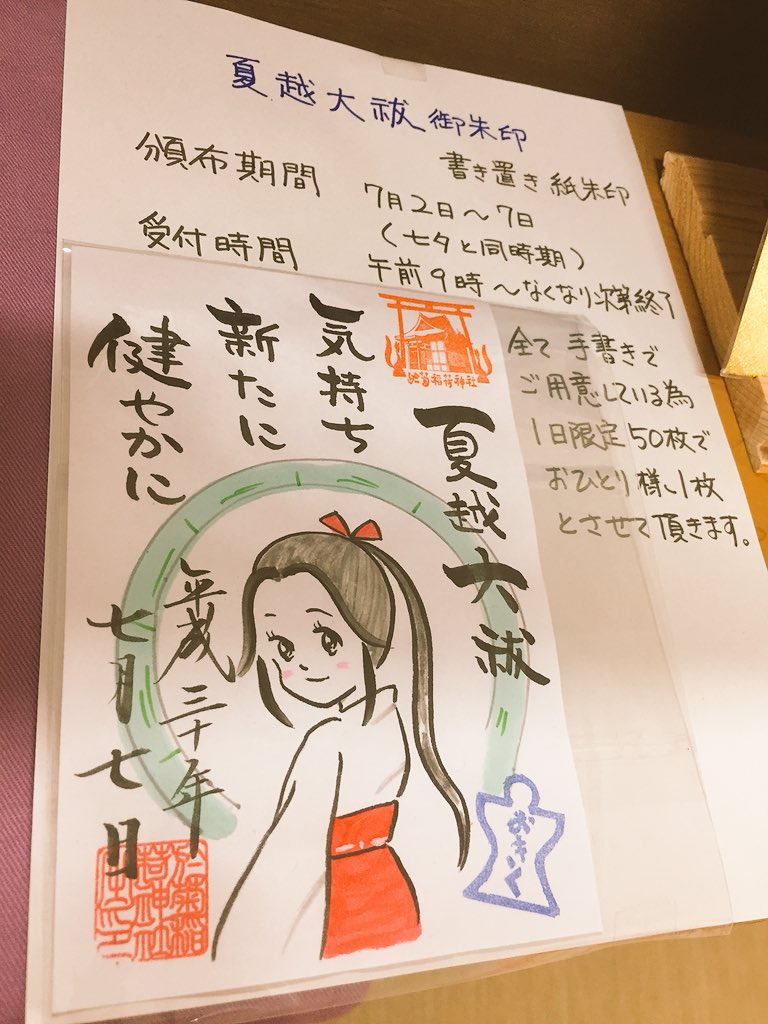 夏越大祓御朱印
書き置き紙朱印
頒布期間
7月2日〜7日
(七夕と同時期)
受付時間
午前9時〜なくなり次第終了
全て手書きで
ご用意している為
1日限定50枚で
おひとり様1枚
とさせて頂きます。
夏越大祓
気持ち
新たに
健やかに
平成三十年
七月七日
於菊稲荷神社
おきく